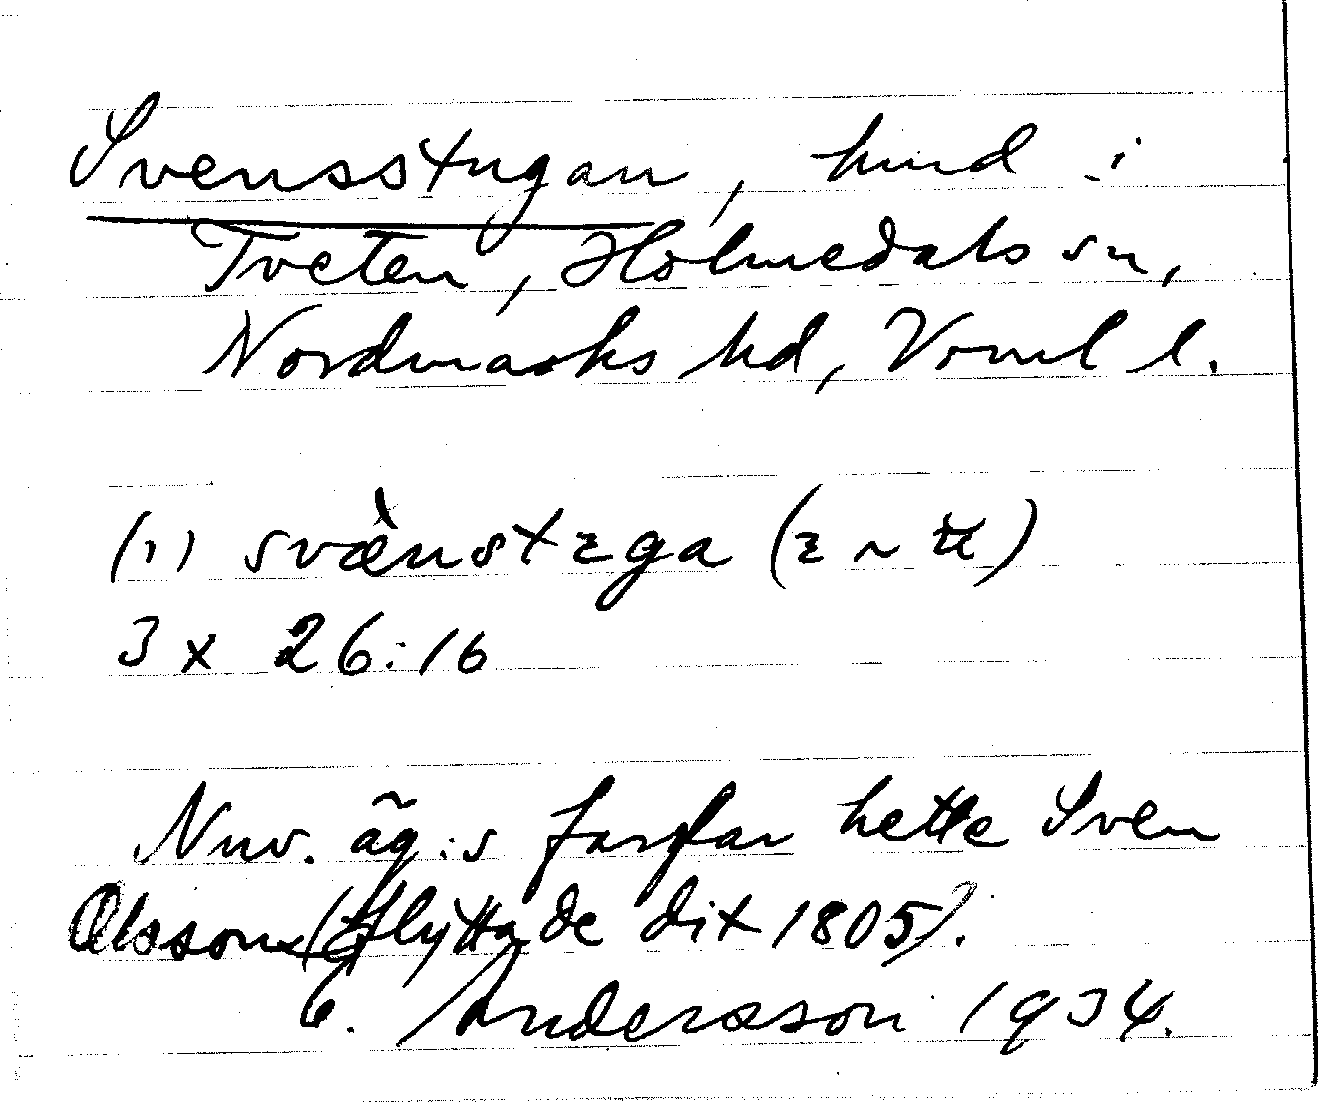 Svensstugan, hmd i
Tveten, Holmedals sn,
Nordmarks hd, Vrml l.
(1) svæ̀nstɛga (ɛ ~ ʉ)
3 x 26:16
Nuv. äg:s farfar hette Sven
Olsson (flyttade dit 1805).
G. Andersson 1934.